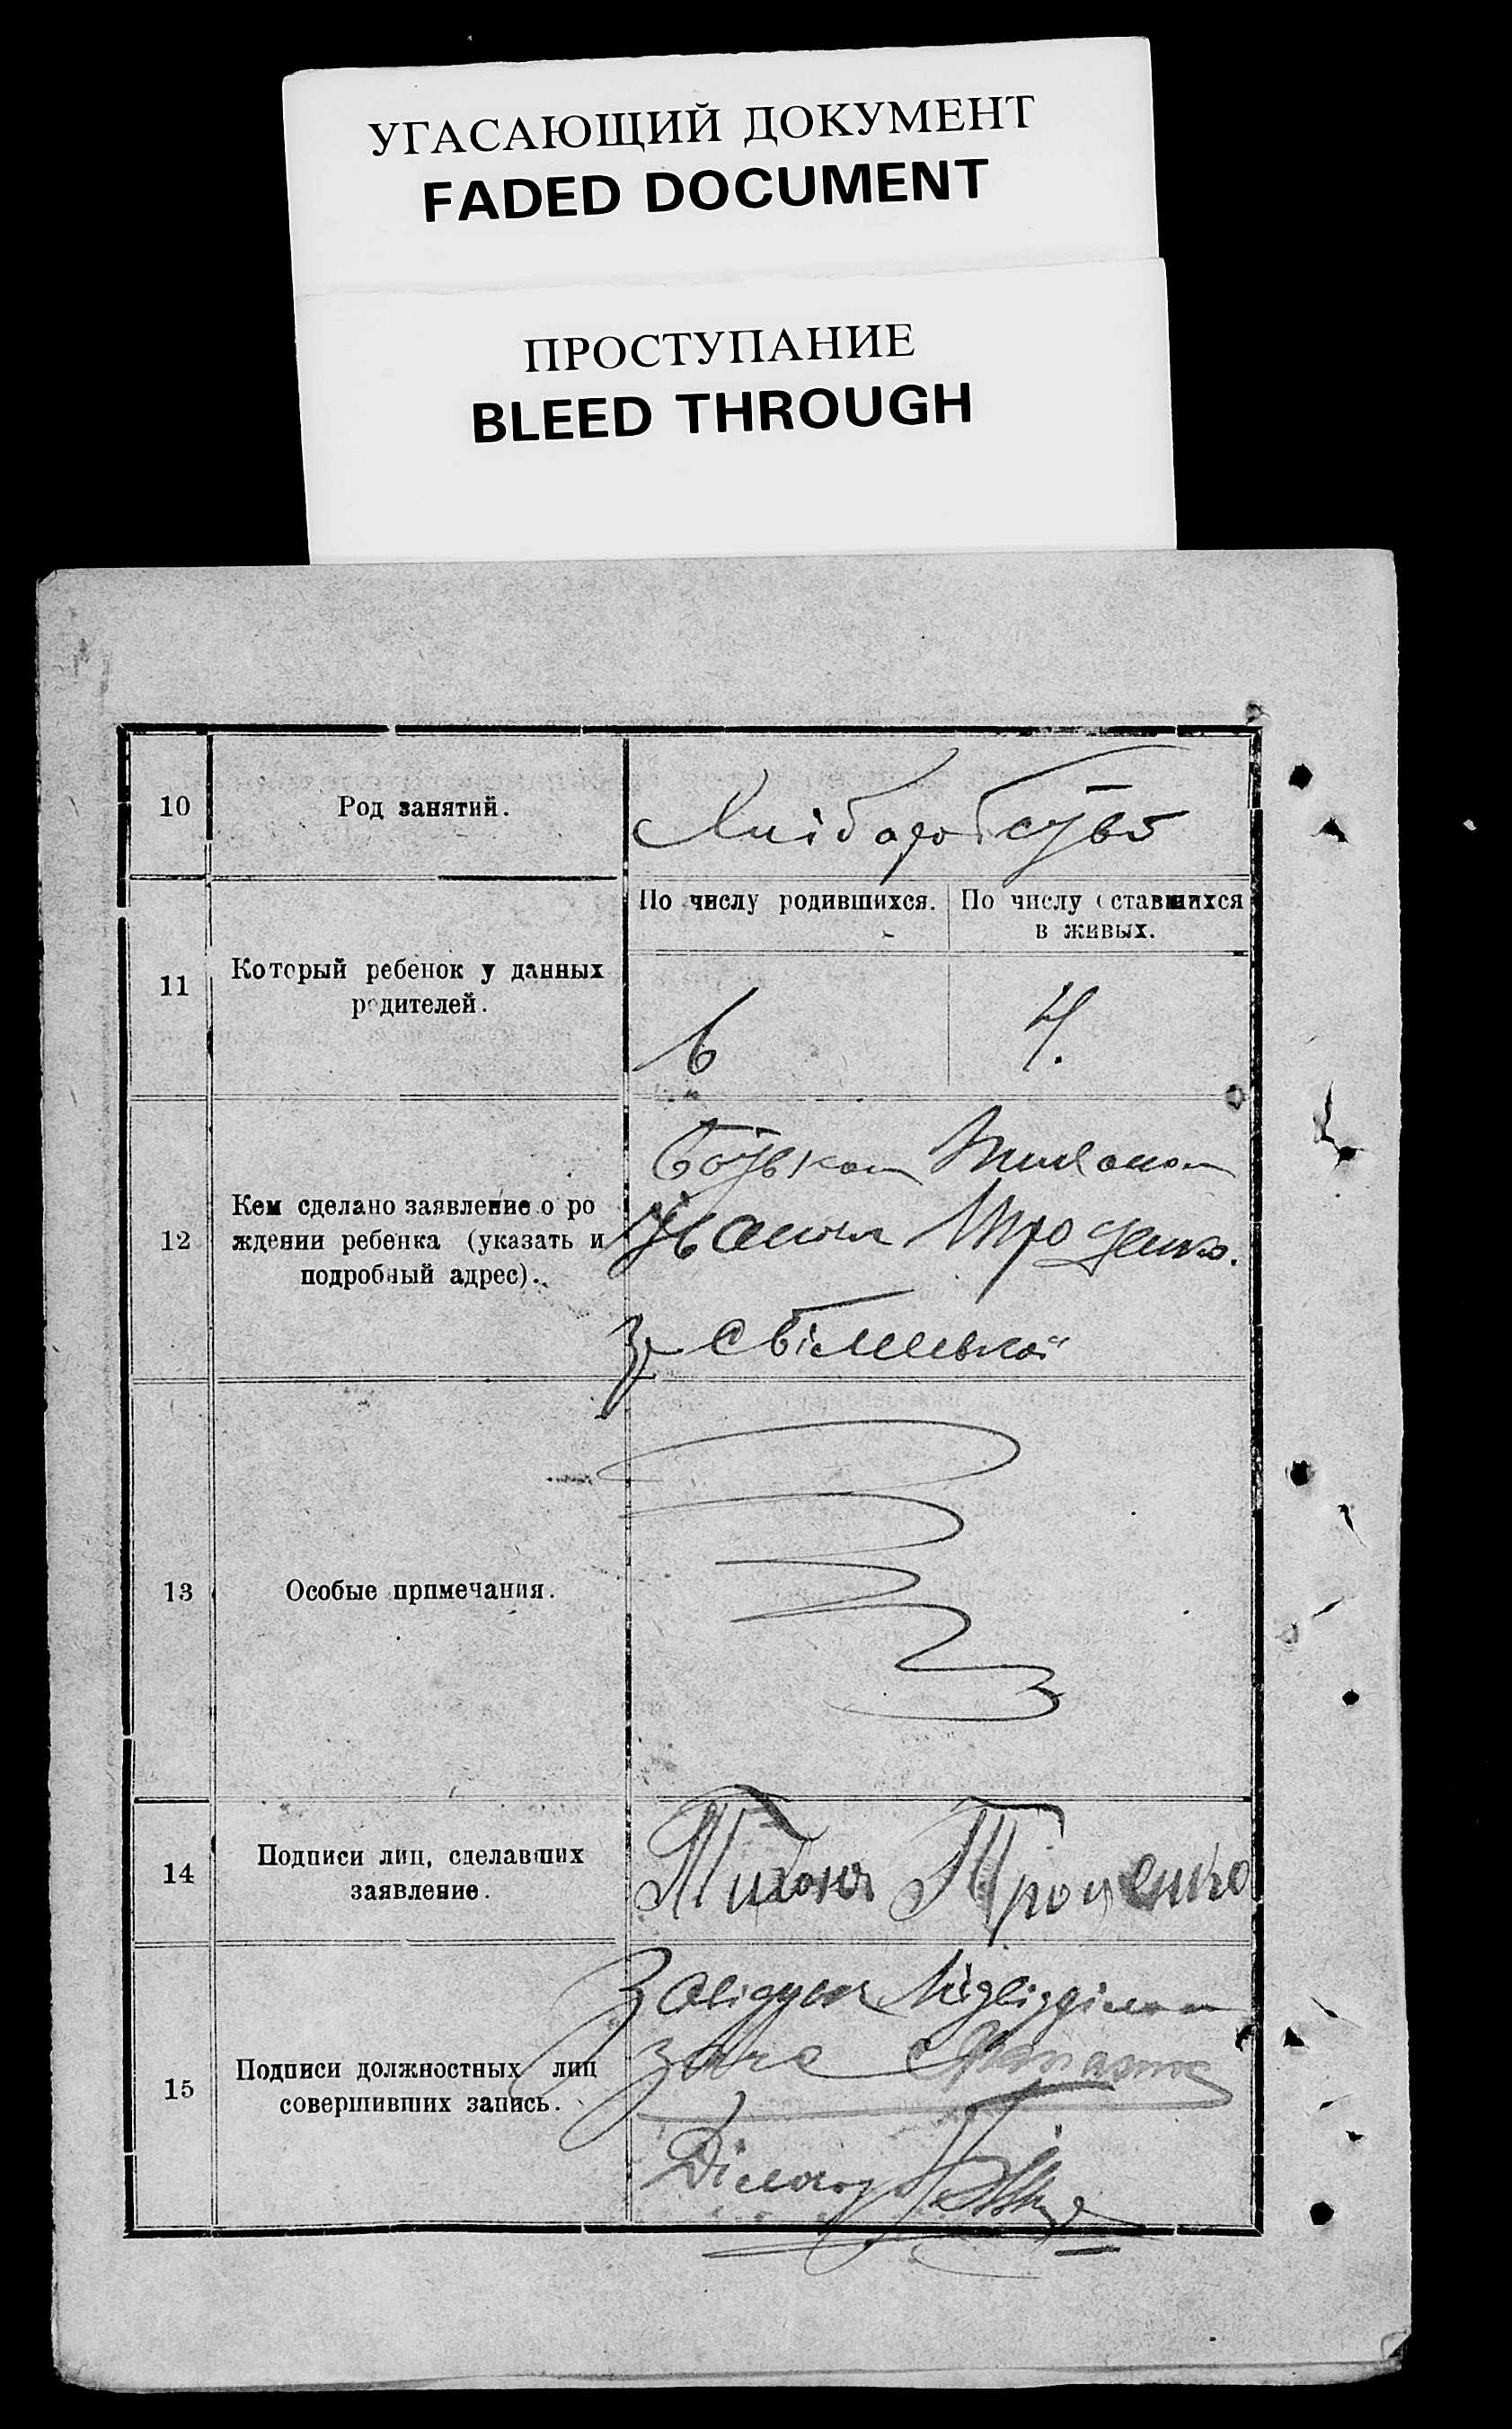 УГАСАЮЩИЙ ДОКУМЕНТ
FADED DOCUMENT
ПРОСТУПАНИЕ
BLEED THROUGH
10
Род занятий.
Хліборобство
11
Который ребенок у данных
родителей.
По числу родившихся.
По числу оставшихся
в живых.
6
4.
12
Кем сделано заявление о ро
ждении ребенка (указать и
подробный адрес).
Батьком Тихоном
Троценко.
з
13
Особые примечания.
14
Подписи лиц, сделавших
заявление.
Тихон Троценко
15
Подписи должностных лиц
совершивших запись.
Завідуюч
Діловод